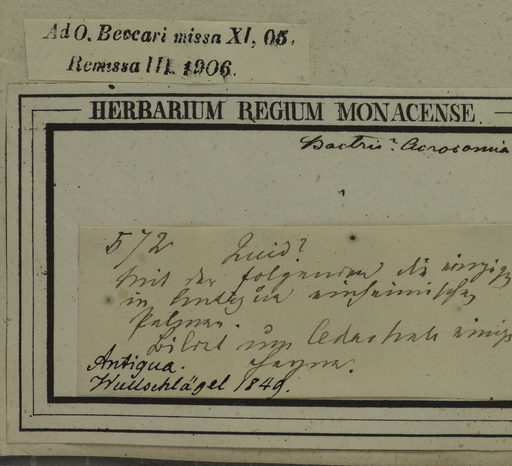 Ad O. Beccari missa XI, 05.
Remissa III. 1906.
HERBARIUM REGIUM MONACENSE
Bactris? Acrocomia
572 Quid?
Mit der folgenden die einzige
in Antigua einheimische
Palmen.
Bildet um Cedarhall einige
Antigua.
Wullschlägel 1849.